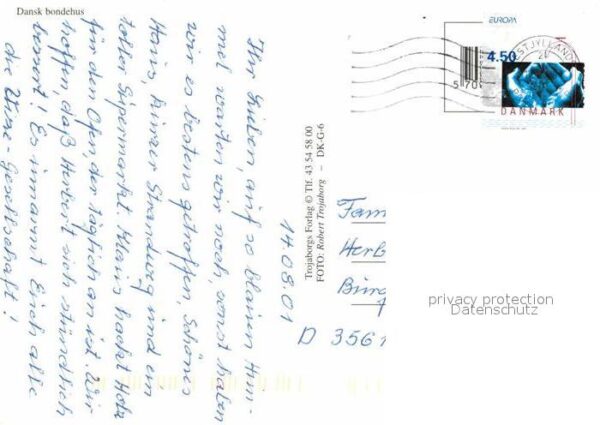 Dansk bondehus
14.08.01
Ihr Lieben, auf so blauen Him-
mel warten wir noch, sonst haben
wir es bestens getroffen, schönes
Haus, kurzer Strandweg und ein
toller Supermarkt. Klaus hackt Holz
für den Ofen, der täglich an ist. Wir
hoffen daß Herbert sich stündlich
bessert! Es umarmt Euch alle
die Urne-Gesellschaft!
Trojaborgs Forlag © Tlf. 43 54 58 00
FOTO: Robert Trojaborg – DK-G-6
EUROPA
4.50
DANMARK
ØSTJYLLAND
5 70
Fam
Herb
Bürg
D 3561
privacy protection
Datenschutz